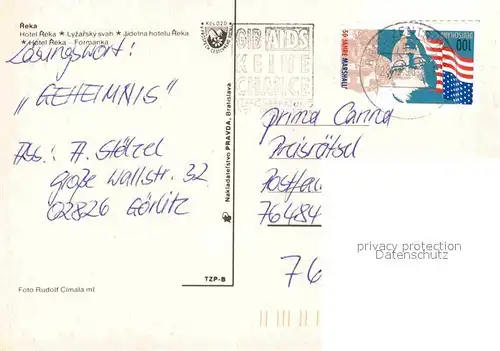 Řeka
Hotel Řeka ★ Lyžařský svah ★ Jídelna hotelu Řeka
★ Hotel Řeka – Formanka
Lösungswort:
„GEHEIMNIS"
Abs.: A. Stölzel
Große Wallstr. 32
02826 Görlitz
Foto Rudolf Cimala ml.
Nakladatelstvo PRAVDA, Bratislava
TZP-B
Kčs 020
GIB AIDS
KEINE
CHANCE
100
DEUTSCHLAND
50 JAHRE MARSHALL
prima Carina
Preisrätsel
Postfa
76484
76
privacy protection
Datenschutz